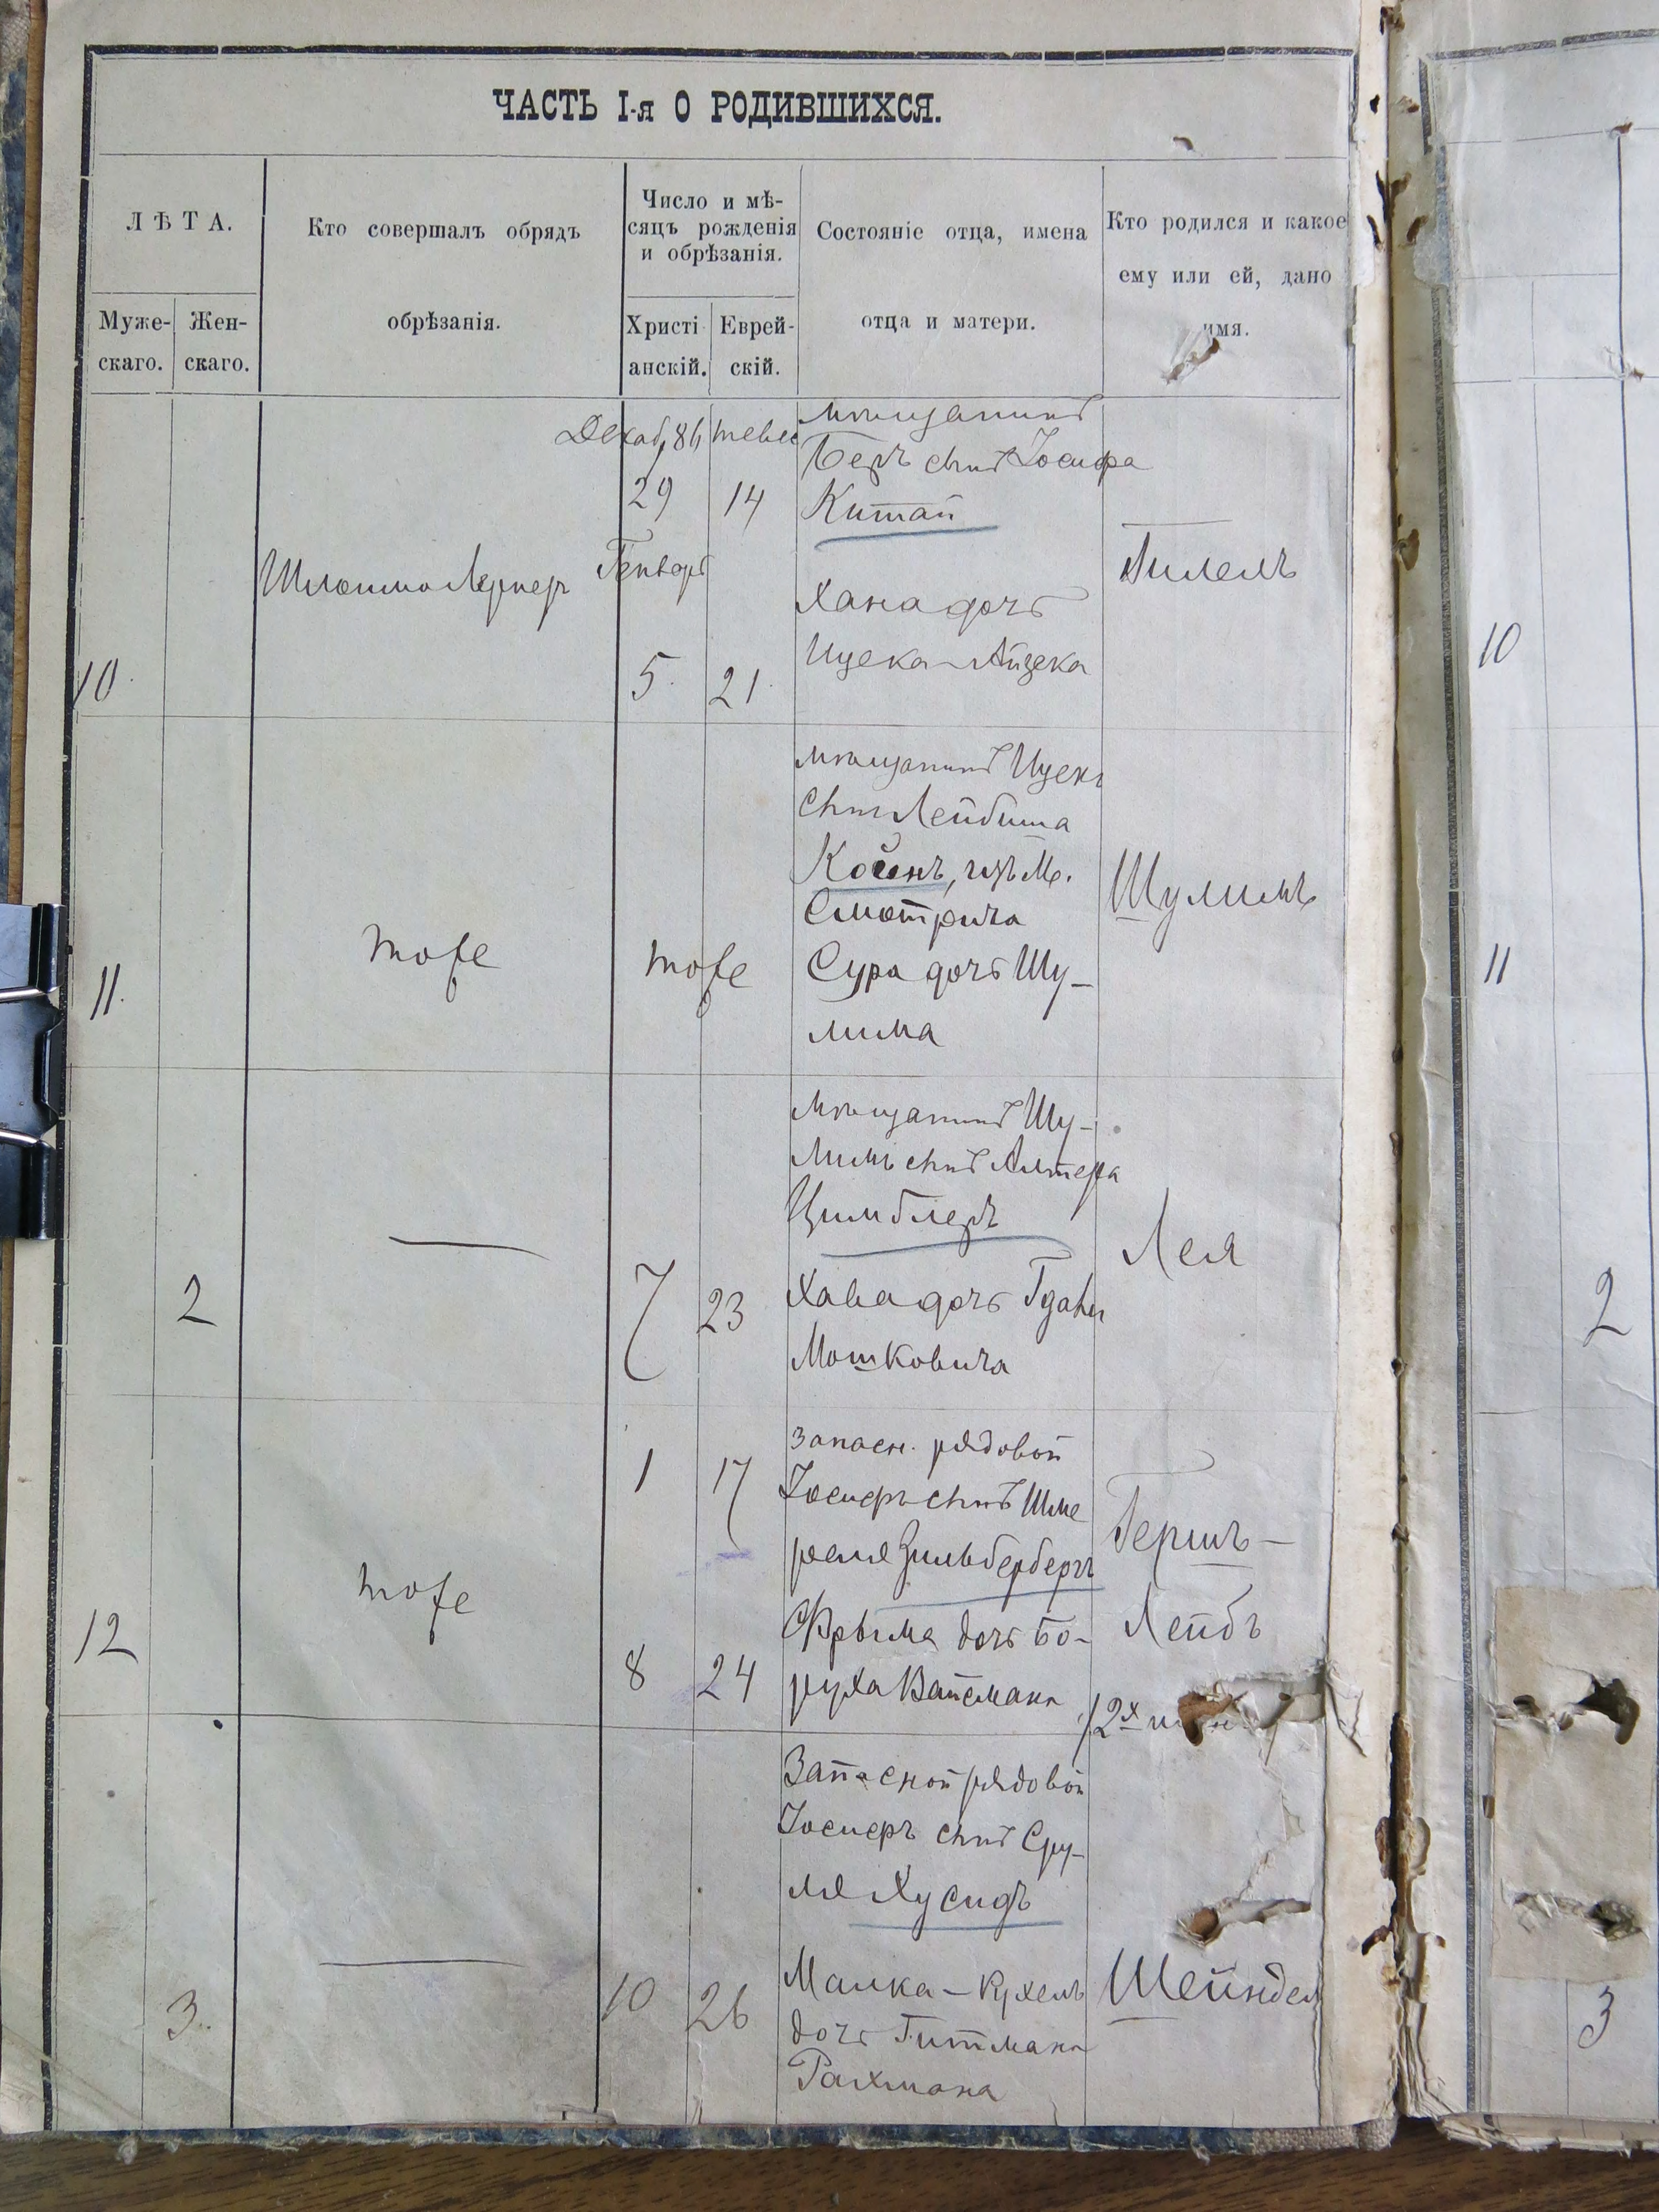 ЧАСТЬ I-я О РОДИВШИХСЯ.
ЛѢТА.
Муже-
скаго.
Жен-
скаго.
Кто совершалъ обрядъ
обрѣзанія.
Число и мѣ-
сяцъ рожденія
и обрѣзанія.
Христі
анскій.
Еврей-
скій.
Состояніе отца, имена
отца и матери.
Кто родился и какое
ему или ей, дано
имя.
10
Шлоима Лернеръ
29 14
Генваръ
5 21
мѣщанинъ
Беръ сынъ Іосифа
Китай
Хана дочь
Ицека-Айзека
Гилель
10
11
тоже
тоже
мѣщанинъ Ицекъ
сынъ Лейбиша
Коенъ, изъ м.
Смотрича
Сура дочь Шу-
лима
Шулимъ
11
2
7 23
мѣщанинъ Шу-
лимъ сынъ Алтера
Цимблеръ
Хава дочь
Мошковича
Лея
2
12
тоже
1 17
8 24
запасн. рядовой
Іосифъ сынъ Шме
реля Зильбербергъ
Фрыма дочь Бо-
руха Вайсмана
Гершъ-
Лейбъ
12
3
10 26
Запасной рядовой
Іосифъ сынъ Сру-
ля Хусидъ
Малка-Рухель
дочь Гитмана
Рахмана
Шейндел
3